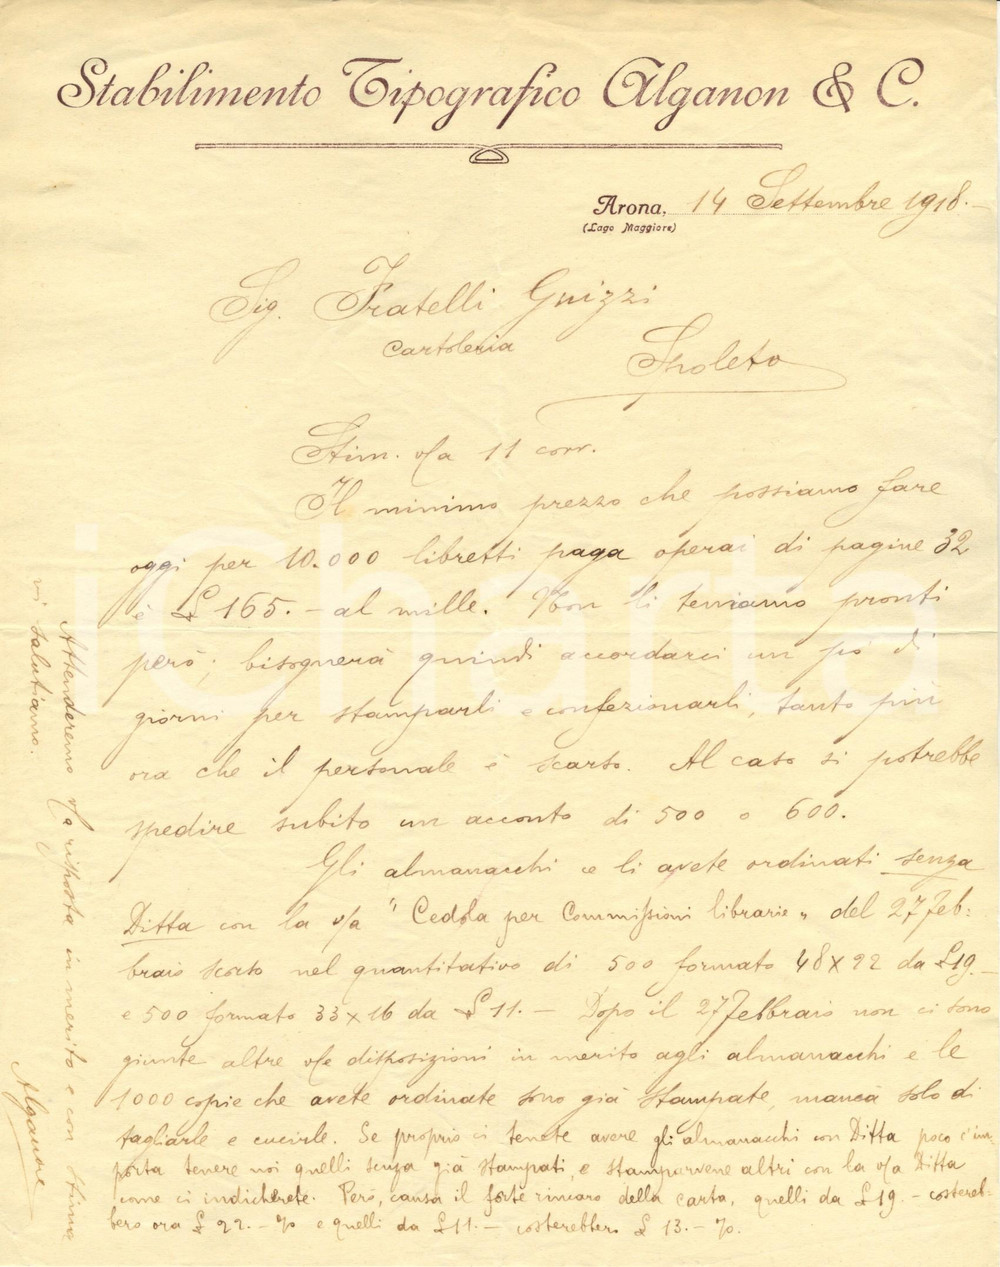 Stabilimento Tipografico Alganon & C.
Arona, 14 Settembre 1918.-
(Lago Maggiore)
Sig. Fratelli Guizzi
Cartoleria
Spoleto
Stim. v/a 11 corr.
Il minimo prezzo che possiamo fare
oggi per 10.000 libretti paga operai di pagine 32
è £ 165.- al mille. Non li teniamo pronti
però; bisognerà quindi accordarci un pò di
giorni per stamparli e confezionarli, tanto più
ora che il personale è scarso. Al caso si potrebbe
spedire subito un acconto di 500 o 600.
Gli almanacchi ce li avete ordinati senza
Ditta con la v/a "Cedola per Commissioni librarie" del 27 Feb=
braio scorso nel quantitativo di 500 formato 48x22 da £19.-
e 500 formato 33x16 da £ 11.- Dopo il 27 Febbraio non ci sono
giunte altre v/e disposizioni in merito agli almanacchi e le
1000 copie che avete ordinate sono già stampate, manca solo di
tagliarle e cucirle. Se proprio ci tenete avere gli almanacchi con Ditta poco c'im=
porta tenere noi quelli senza già stampati, e stamparvene altri con la v/a Ditta
come ci indicherete. Però, causa il forte rincaro della carta, quelli da £19.- costereb=
bero ora £ 22.- % e quelli da £11.- costerebbero £ 13.- %.
Attenderemo v/a risposta in merito e con stima
vi salutiamo.
Alganon
iCharta